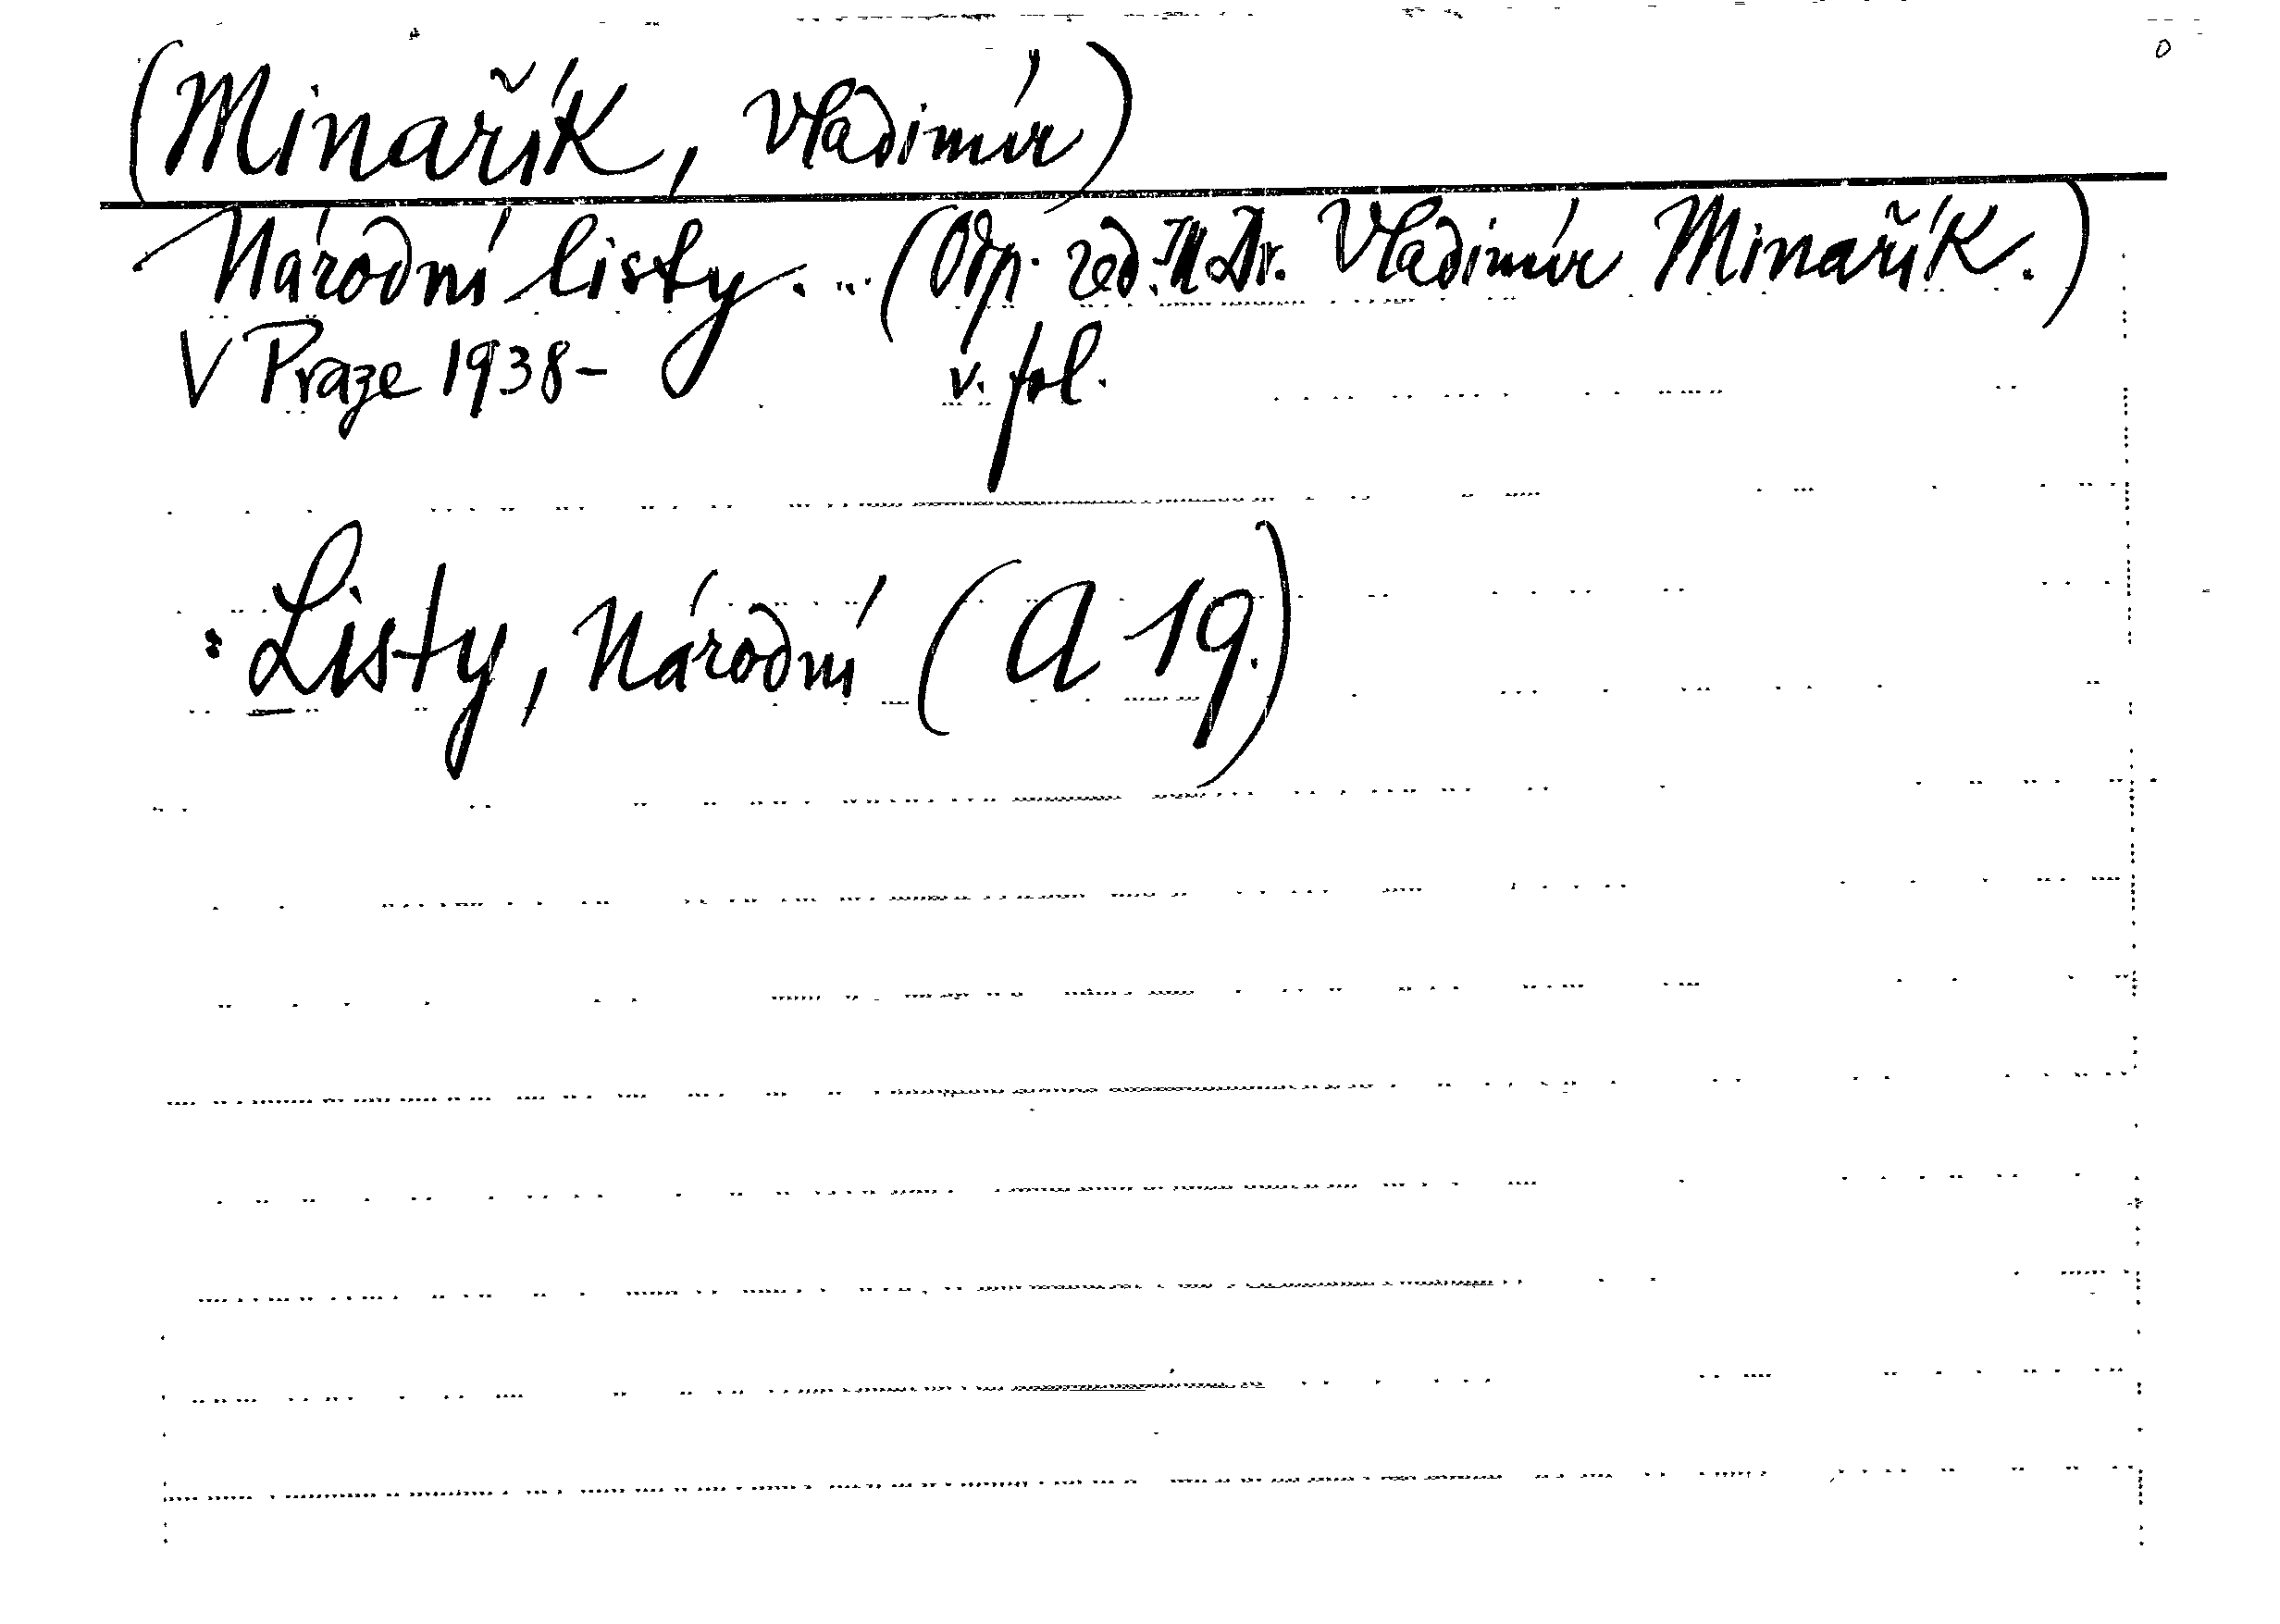 (Minařík, Vladimír)
Národní listy. ... (Odp. red. JUDr. Vladimír Minařík.)
V Praze 1938- v. fol.
: Listy, Národní (A 19.)